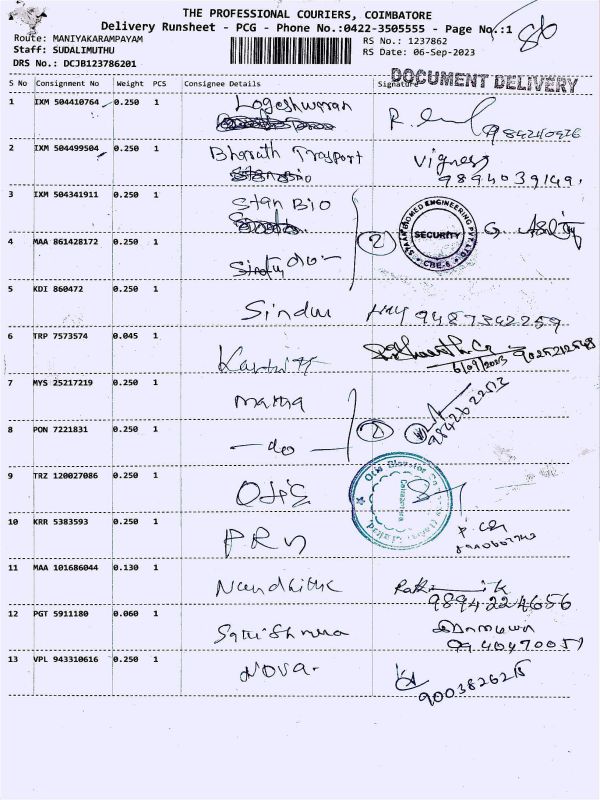 THE PROFESSIONAL COURIERS, COIMBATORE
Delivery Runsheet - PCG - Phone No.:0422-3505555 - Page No.:1
86
Route: MANIYAKARAMPAYAM
RS No.: 1237862
Staff: SUDALIMUTHU
RS Date: 06-Sep-2023
DRS No.: DCJB123786201
DOCUMENT DELIVERY
S No Consignment No Weight PCS Consignee Details Signature
1 IXM 504410764 0.250 1 Logeshwaran
2 IXM 504499504 0.250 1 Bharath Trasport Vignesh
9894039149
3 IXM 504341911 0.250 1 Stan Bio
2 SECURITY CBE-6
4 MAA 861428172 0.250 1 do
5 KDI 860472 0.250 1 Sindu 9487342259
6 TRP 7573574 0.045 1 Karthi
6/09/2023
7 MYS 25217219 0.250 1 matha
2
8 PON 7221831 0.250 1 -do-
9 TRZ 120027086 0.250 1 Otis
10 KRR 5383593 0.250 1 PRN
11 MAA 101686044 0.130 1
9894224656
12 PGT 5911180 0.060 1
9940470051
13 VPL 943310616 0.250 1 Nova